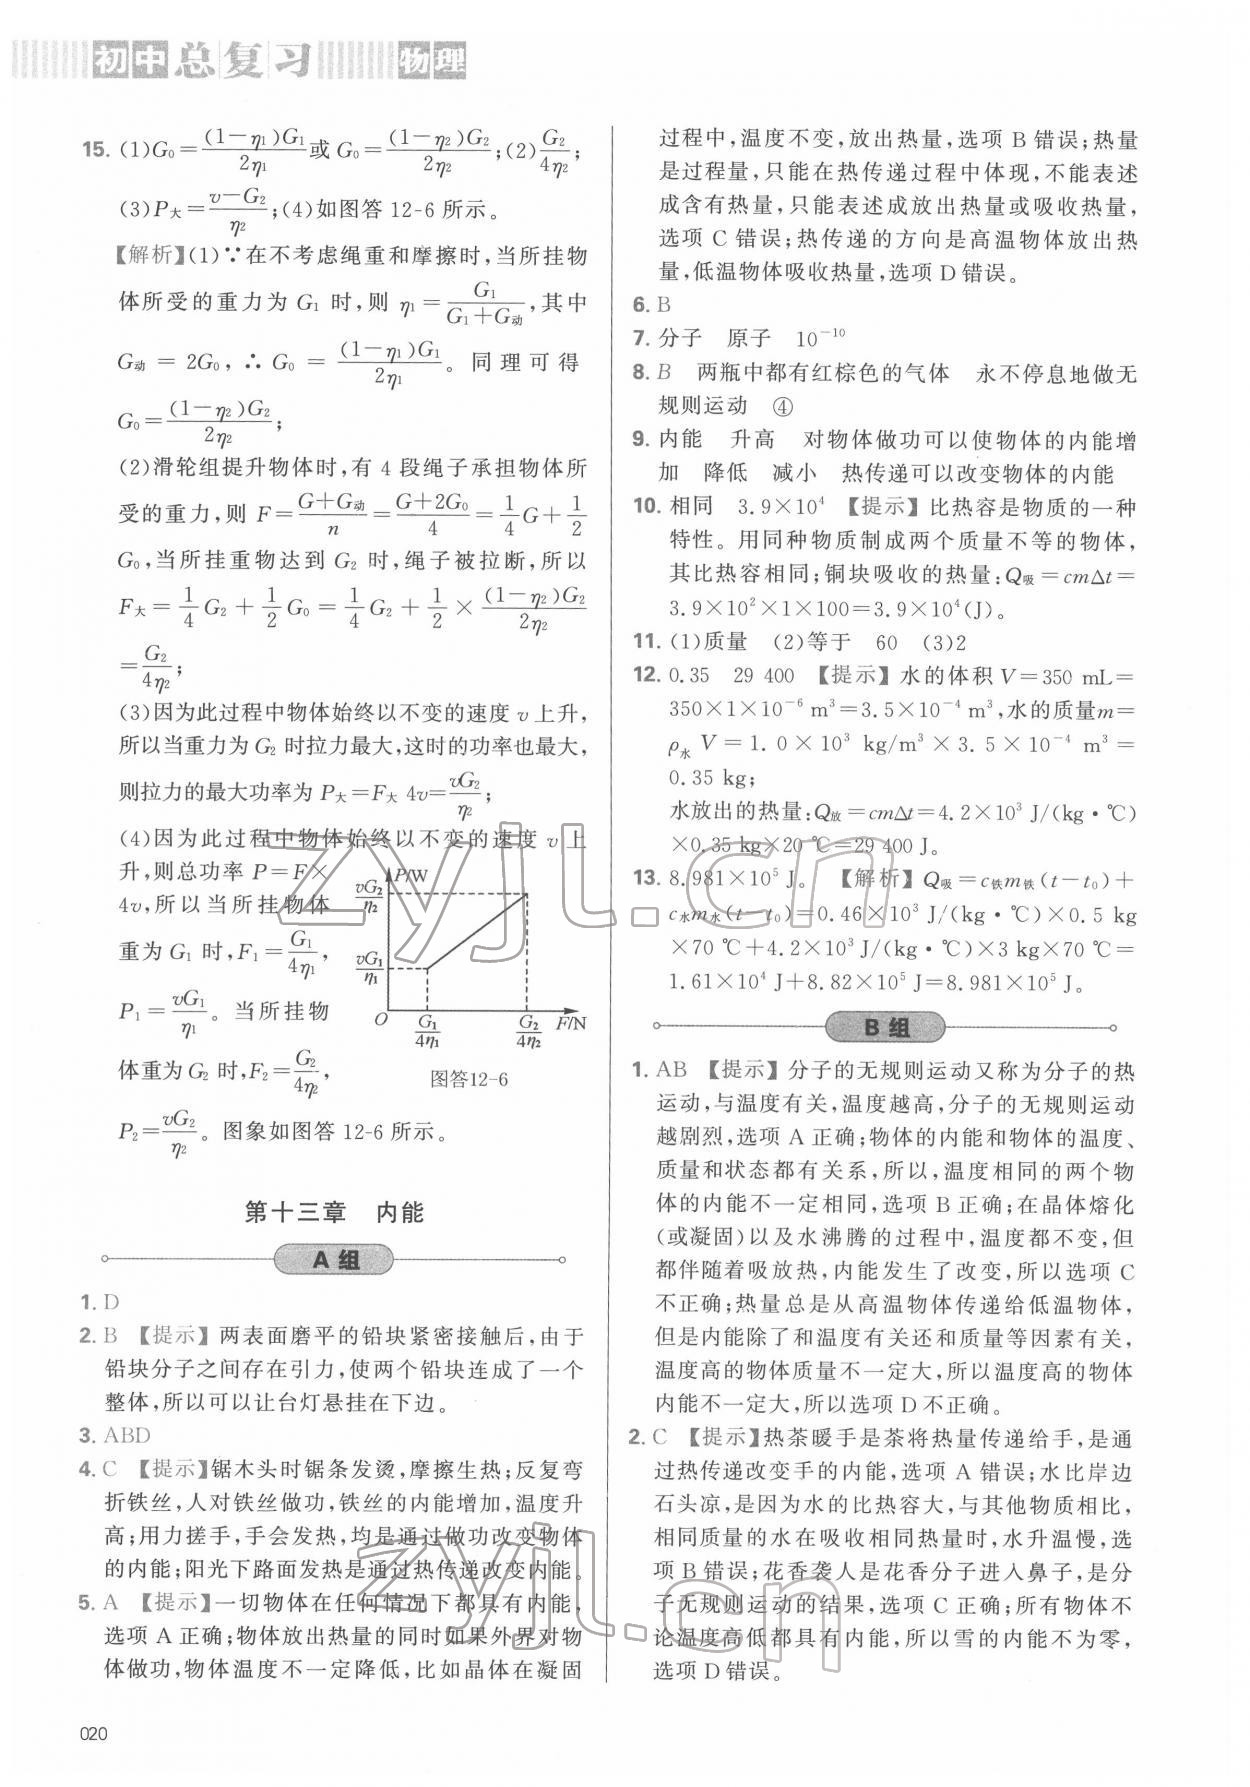 初中总复习 物理
15. (1)G₀=(1-η₁)G₁/2η₁或G₀=(1-η₂)G₂/2η₂;(2)G₂/4η₂;
(3)P大=v-G₂/η₂;(4)如图答12-6所示。
【解析】(1)∵在不考虑绳重和摩擦时,当所挂物
体所受的重力为G₁时,则η₁=G₁/(G₁+G动),其中
G动=2G₀,∴G₀=(1-η₁)G₁/2η₁。同理可得
G₀=(1-η₂)G₂/2η₂;
(2)滑轮组提升物体时,有4段绳子承担物体所
受的重力,则F=(G+G动)/n=(G+2G₀)/4=1/4G+1/2
G₀,当所挂重物达到G₂时,绳子被拉断,所以
F大=1/4G₂+1/2G₀=1/4G₂+1/2×(1-η₂)G₂/2η₂
=G₂/4η₂;
(3)因为此过程中物体始终以不变的速度v上升,
所以当重力为G₂时拉力最大,这时的功率也最大,
则拉力的最大功率为P大=F大 4v=vG₂/η₂;
(4)因为此过程中物体始终以不变的速度v上
升,则总功率P=F×
4v,所以当所挂物体
重为G₁时,F₁=G₁/4η₁,
P₁=vG₁/η₁。当所挂物
体重为G₂时,F₂=G₂/4η₂,
P₂=vG₂/η₂。图象如图答12-6所示。
P/W
vG₂/η₂
vG₁/η₁
O G₁/4η₁ G₂/4η₂ F/N
图答12-6
第十三章 内能
A组
1. D
2. B 【提示】两表面磨平的铅块紧密接触后,由于
铅块分子之间存在引力,使两个铅块连成了一个
整体,所以可以让台灯悬挂在下边。
3. ABD
4. C 【提示】锯木头时锯条发烫,摩擦生热;反复弯
折铁丝,人对铁丝做功,铁丝的内能增加,温度升
高;用力搓手,手会发热,均是通过做功改变物体
的内能;阳光下路面发热是通过热传递改变内能。
5. A 【提示】一切物体在任何情况下都具有内能,
选项A正确;物体放出热量的同时如果外界对物
体做功,物体温度不一定降低,比如晶体在凝固
过程中,温度不变,放出热量,选项B错误;热量
是过程量,只能在热传递过程中体现,不能表述
成含有热量,只能表述成放出热量或吸收热量,
选项C错误;热传递的方向是高温物体放出热
量,低温物体吸收热量,选项D错误。
6. B
7. 分子 原子 10⁻¹⁰
8. B 两瓶中都有红棕色的气体 永不停息地做无
规则运动 ④
9. 内能 升高 对物体做功可以使物体的内能增
加 降低 减小 热传递可以改变物体的内能
10. 相同 3.9×10⁴ 【提示】比热容是物质的一种
特性。用同种物质制成两个质量不等的物体,
其比热容相同;铜块吸收的热量:Q吸=cmΔt=
3.9×10²×1×100=3.9×10⁴(J)。
11. (1)质量 (2)等于 60 (3)2
12. 0.35 29 400 【提示】水的体积V=350 mL=
350×1×10⁻⁶ m³=3.5×10⁻⁴ m³,水的质量m=
ρ水 V=1.0×10³ kg/m³×3.5×10⁻⁴ m³=
0.35 kg;
水放出的热量:Q放=cmΔt=4.2×10³ J/(kg·℃)
×0.35 kg×20 ℃=29 400 J。
13. 8.981×10⁵ J。 【解析】Q吸=c铁m铁(t-t₀)+
c水m水(t-t₀)=0.46×10³ J/(kg·℃)×0.5 kg
×70 ℃+4.2×10³ J/(kg·℃)×3 kg×70 ℃=
1.61×10⁴ J+8.82×10⁵ J=8.981×10⁵ J。
B组
1. AB 【提示】分子的无规则运动又称为分子的热
运动,与温度有关,温度越高,分子的无规则运动
越剧烈,选项A正确;物体的内能和物体的温度、
质量和状态都有关系,所以,温度相同的两个物
体的内能不一定相同,选项B正确;在晶体熔化
(或凝固)以及水沸腾的过程中,温度都不变,但
都伴随着吸放热,内能发生了改变,所以选项C
不正确;热量总是从高温物体传递给低温物体,
但是内能除了和温度有关还和质量等因素有关,
温度高的物体质量不一定大,所以温度高的物体
内能不一定大,所以选项D不正确。
2. C 【提示】热茶暖手是茶将热量传递给手,是通
过热传递改变手的内能,选项A错误;水比岸边
石头凉,是因为水的比热容大,与其他物质相比,
相同质量的水在吸收相同热量时,水升温慢,选
项B错误;花香袭人是花香分子进入鼻子,是分
子无规则运动的结果,选项C正确;所有物体不
论温度高低都具有内能,所以雪的内能不为零,
选项D错误。
020
zyjl.cn
zyjl.cn